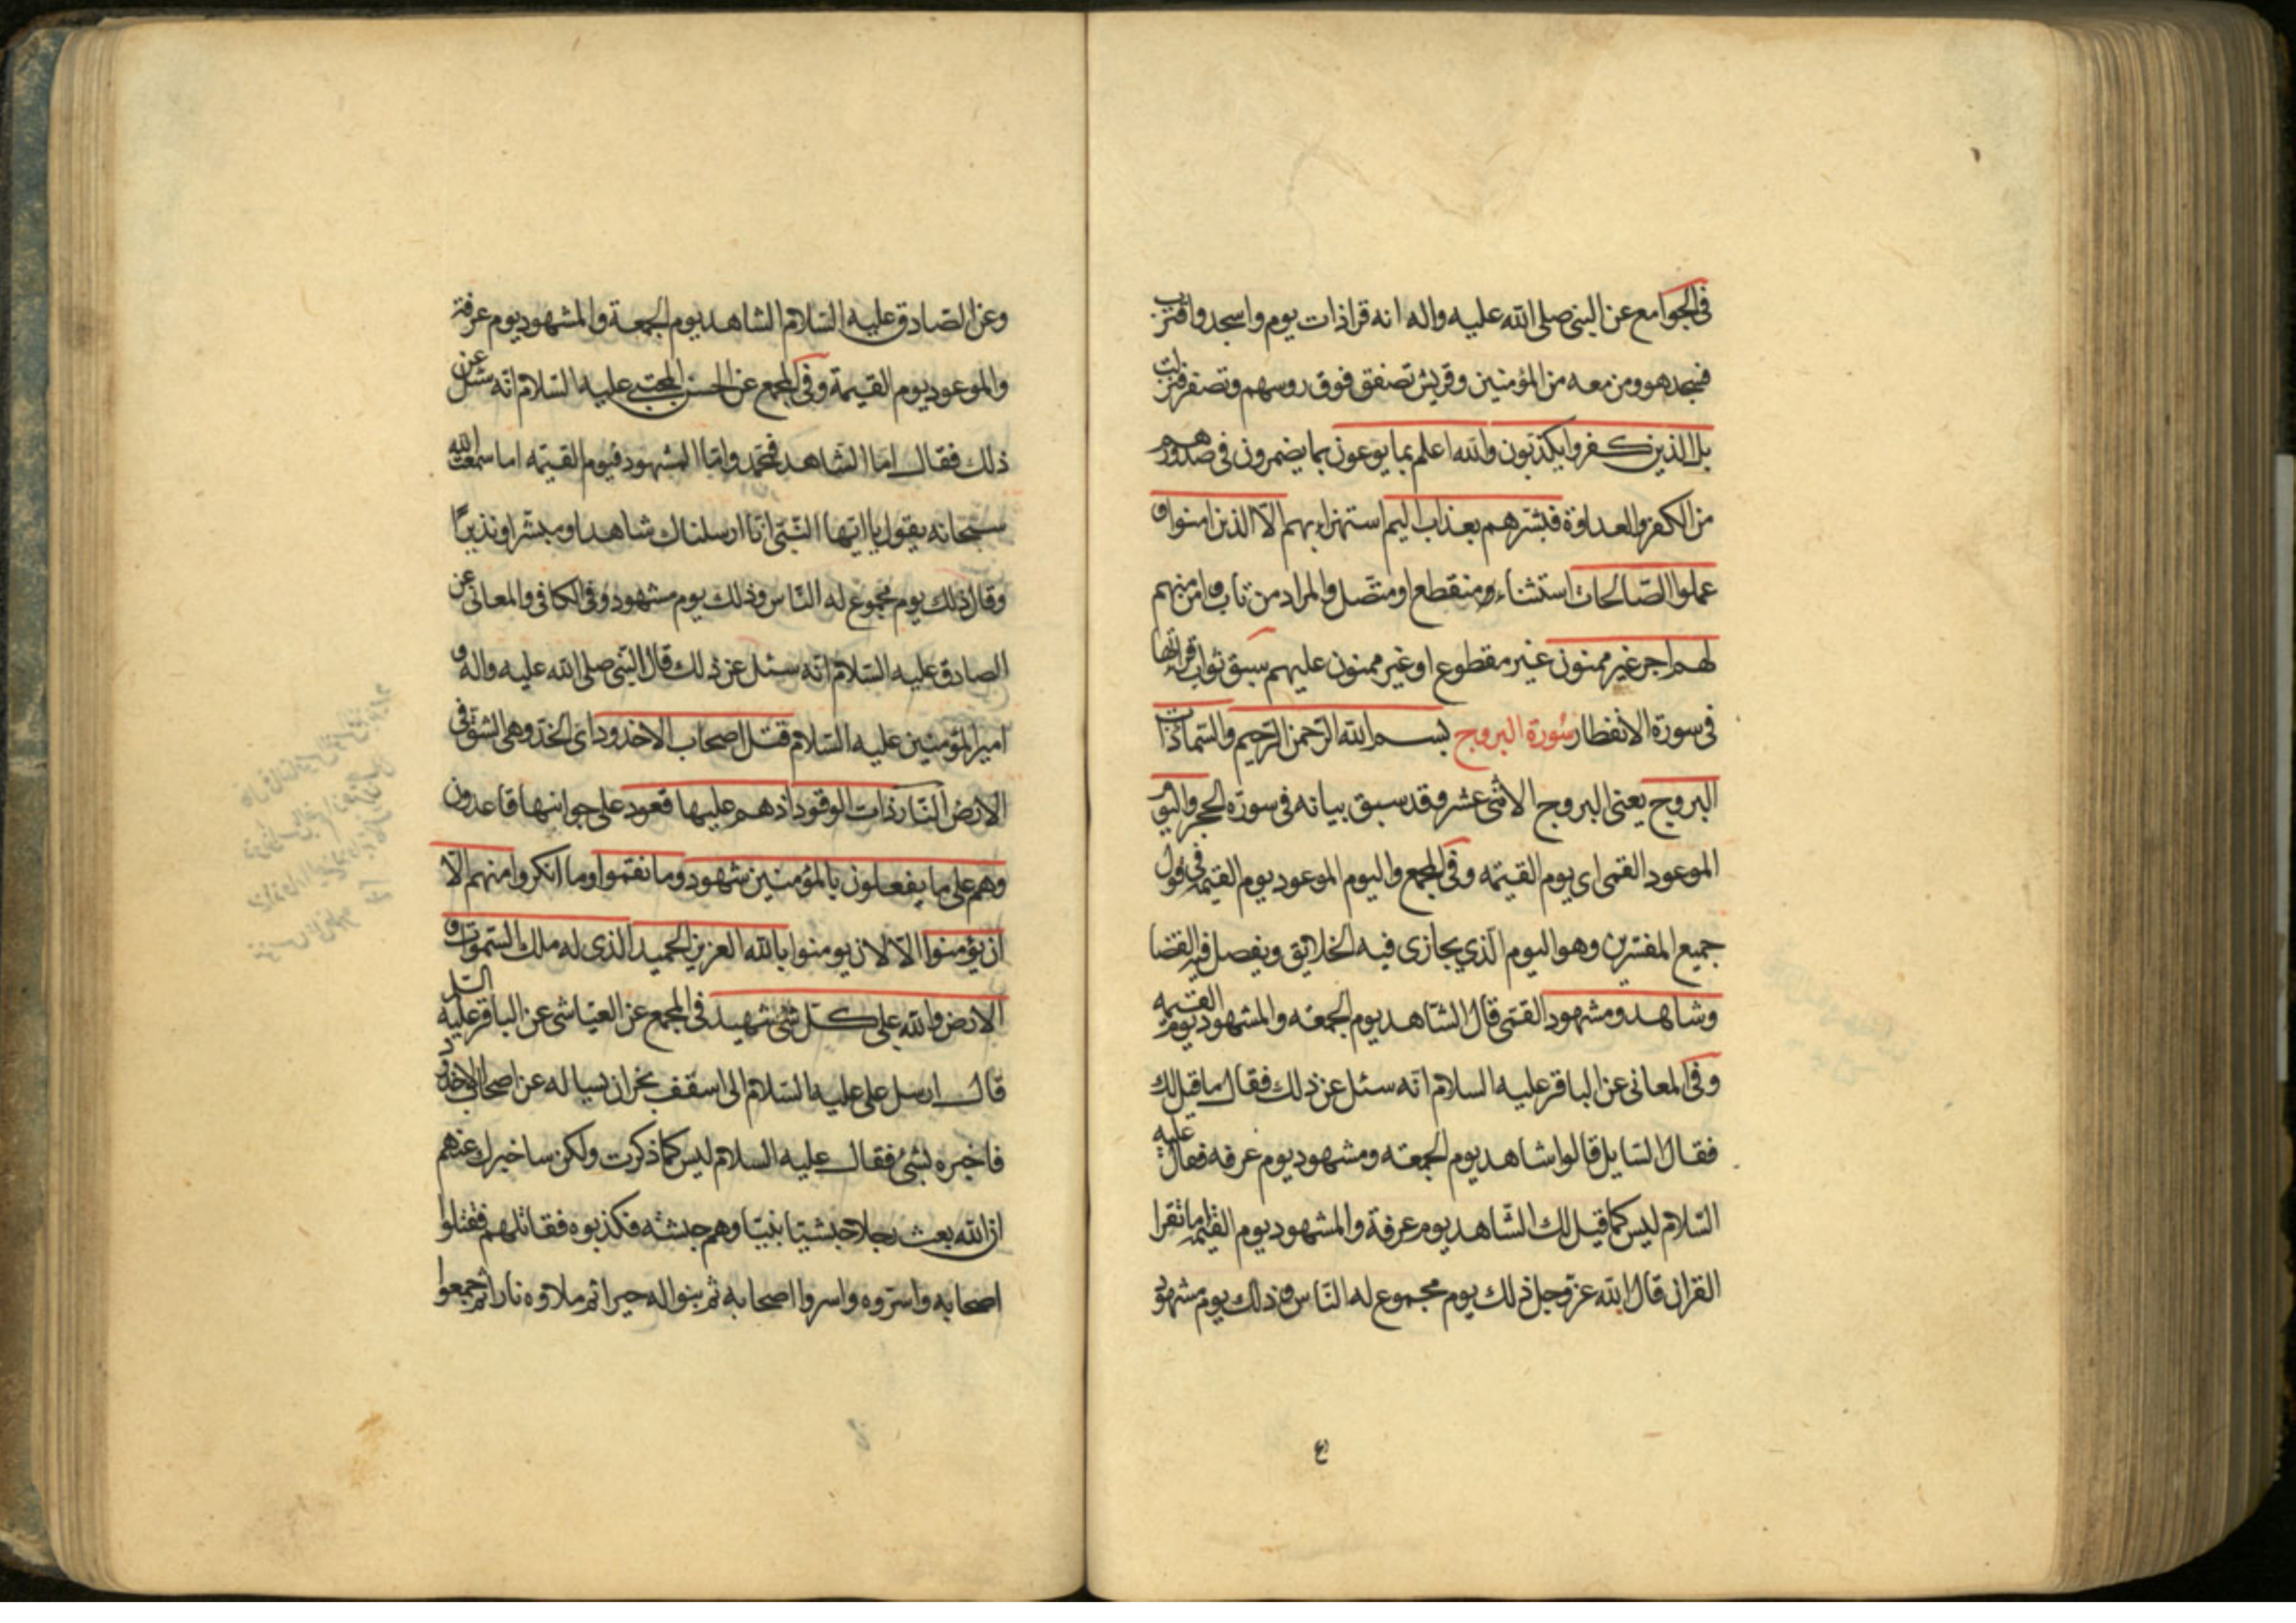 فى الجوامع عن النبى صلى الله عليه واله انه قرا ذات يوم واسجد واقترب
فسجد هو ومن معه من المؤمنين وقريش تصفق فوق روسهم وتصفر فنزلت
بل الذين كفروا يكذبون والله اعلم بما يوعون بما يضمرون فى صدورهم
من الكفر والعداوة فبشرهم بعذاب اليم استهزاء بهم الّا الذين امنوا و
عملوا الصّالحات استثناء منقطع او متّصل والمراد من تاب وامن منهم
لهم اجر غير ممنون غير مقطوع او غير ممنون عليهم سبق ثواب قراتها
فى سورة الانفطار سورة البروج بسم الله الرّحمن الرّحيم والسّماء ذات
البروج يعنى البروج الاثنى عشر وقد سبق بيانه فى سورة الحجر واليوم
الموعود القمى اى يوم القيمه وفى المجمع واليوم الموعود يوم القيمه فى قول
جميع المفسّرين وهو اليوم الّذي يجازى فيه الخلايق ويفصل فيه القضا
وشاهد ومشهود القمّى قال الشّاهد يوم الجمعه والمشهود يوم القيمه
وفى المعانى عن الباقر عليه السلام انّه سئل عن ذلك فقال ما قيل لك
فقال السّايل قالوا شاهد يوم الجمعه ومشهود يوم عرفه فقال عليه
السّلام ليس كما قيل لك الشّاهد يوم عرفة والمشهود يوم القيمه اما تقرا
القران قال الله عزّ وجل ذلك يوم مجموع له النّاس وذلك يوم مشهود
ع
وعن الصّادق عليه السّلام الشاهد يوم الجمعة والمشهود يوم عرفة
والموعود يوم القيمة وفى المجمع عن الحسن المجتبى عليه السّلام انّه سئل عن
ذلك فقال اما الشاهد فمحمّد وامّا المشهود فيوم القيمه اما سمعت الله
سبحانه يقول يا ايّها النّبىّ انّا ارسلناك شاهدا ومبشّرا ونذيرًا
وقال ذلك يوم مجموع له النّاس وذلك يوم مشهود وفى الكافى والمعانى عن
الصادق عليه السّلام انّه سئل عن ذلك قال النّبى صلى الله عليه واله و
امير المؤمنين عليه السّلام قتل اصحاب الاخدود اى الخدّ وهى الشقّ فى
الارض النّار ذات الوقود اذ هم عليها قعود على جوانبها قاعدون
وهم على ما يفعلون بالمؤمنين شهود وما نقموا وما انكروا منهم الّا
ان يؤمنوا الّا لان يومنوا بالله العزيز الحميد الّذى له ملك السّموات و
الارض والله على كلّ شئ شهيد فى المجمع عن العيّاشى عن الباقر عليه السّلام
قال ارسل على عليه السّلام الى اسقف نجران يساله عن اصحاب الاخدود
فاخبره بشئ فقال عليه السلام ليس كما ذكرت ولكن ساخبرك عنهم
ان الله بعث رجلا حبشيّا نبيّا وهم حبشه فكذبوه فقاتلهم فقتلوا
اصحابه واسروه واسروا اصحابه ثم بنوا له حيرا ثم ملاوه نارا ثم جمعوا